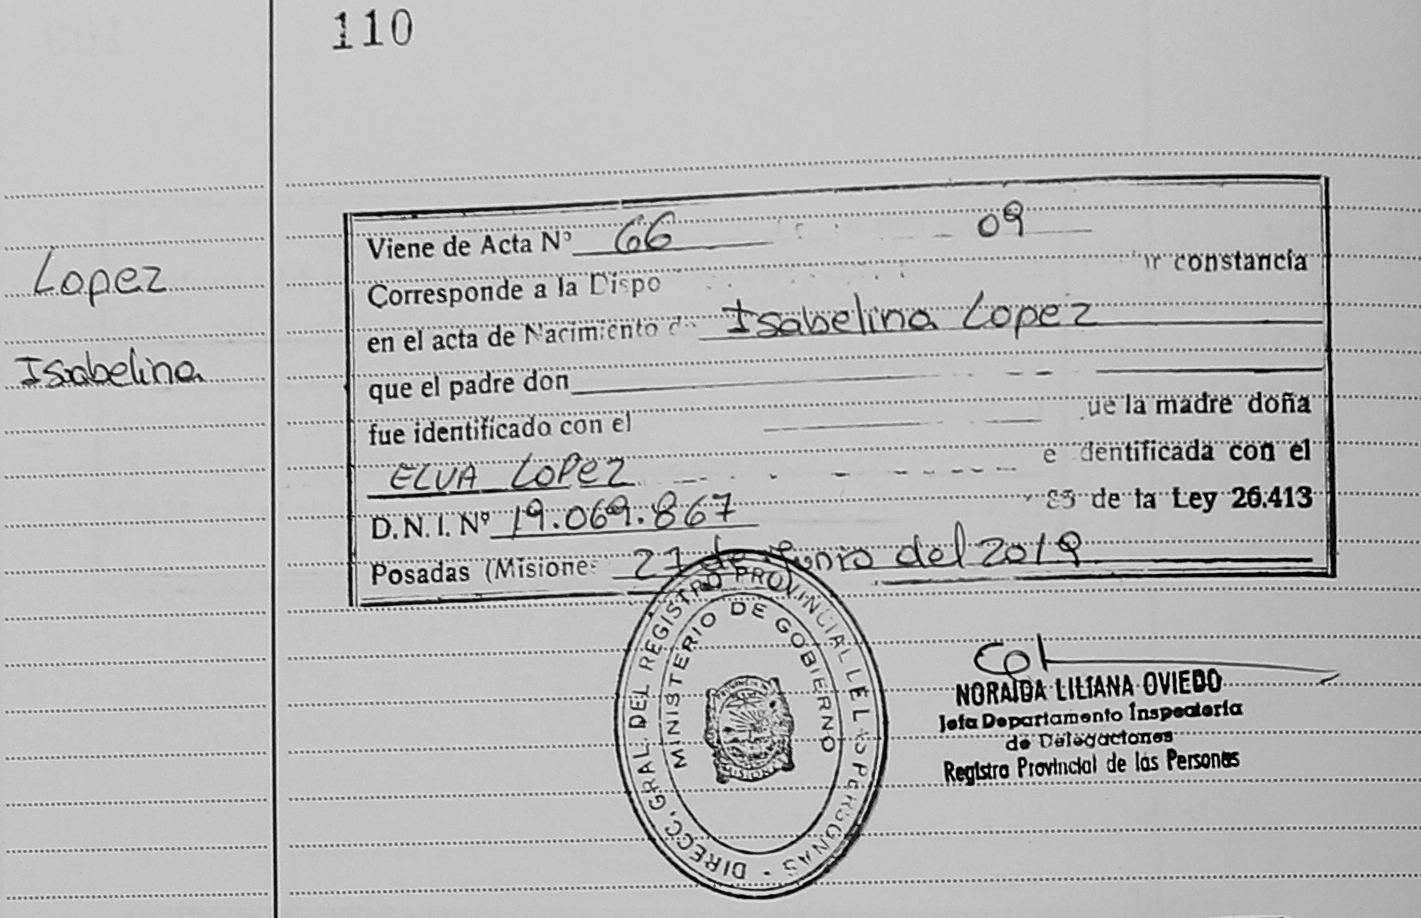 110
Lopez
Isabelina
Viene de Acta Nº 66 09
Corresponde a la Dispo constancia
en el acta de Nacimiento d Isabelina Lopez
que el padre don
fue identificado con el ue la madre doña
ELVA LOPEZ e dentificada con el
D.N.I. Nº 19.069.867 85 de la Ley 26.413
Posadas (Misiones 27 de Junio del 2019
DIRECC. GRAL. DEL REGISTRO PROVINCIAL DE LAS PERSONAS
MINISTERIO DE GOBIERNO
MISIONES
NORAIDA LILIANA OVIEDO
Jefa Departamento Inspectoría
de Delegaciones
Registro Provincial de las Personas